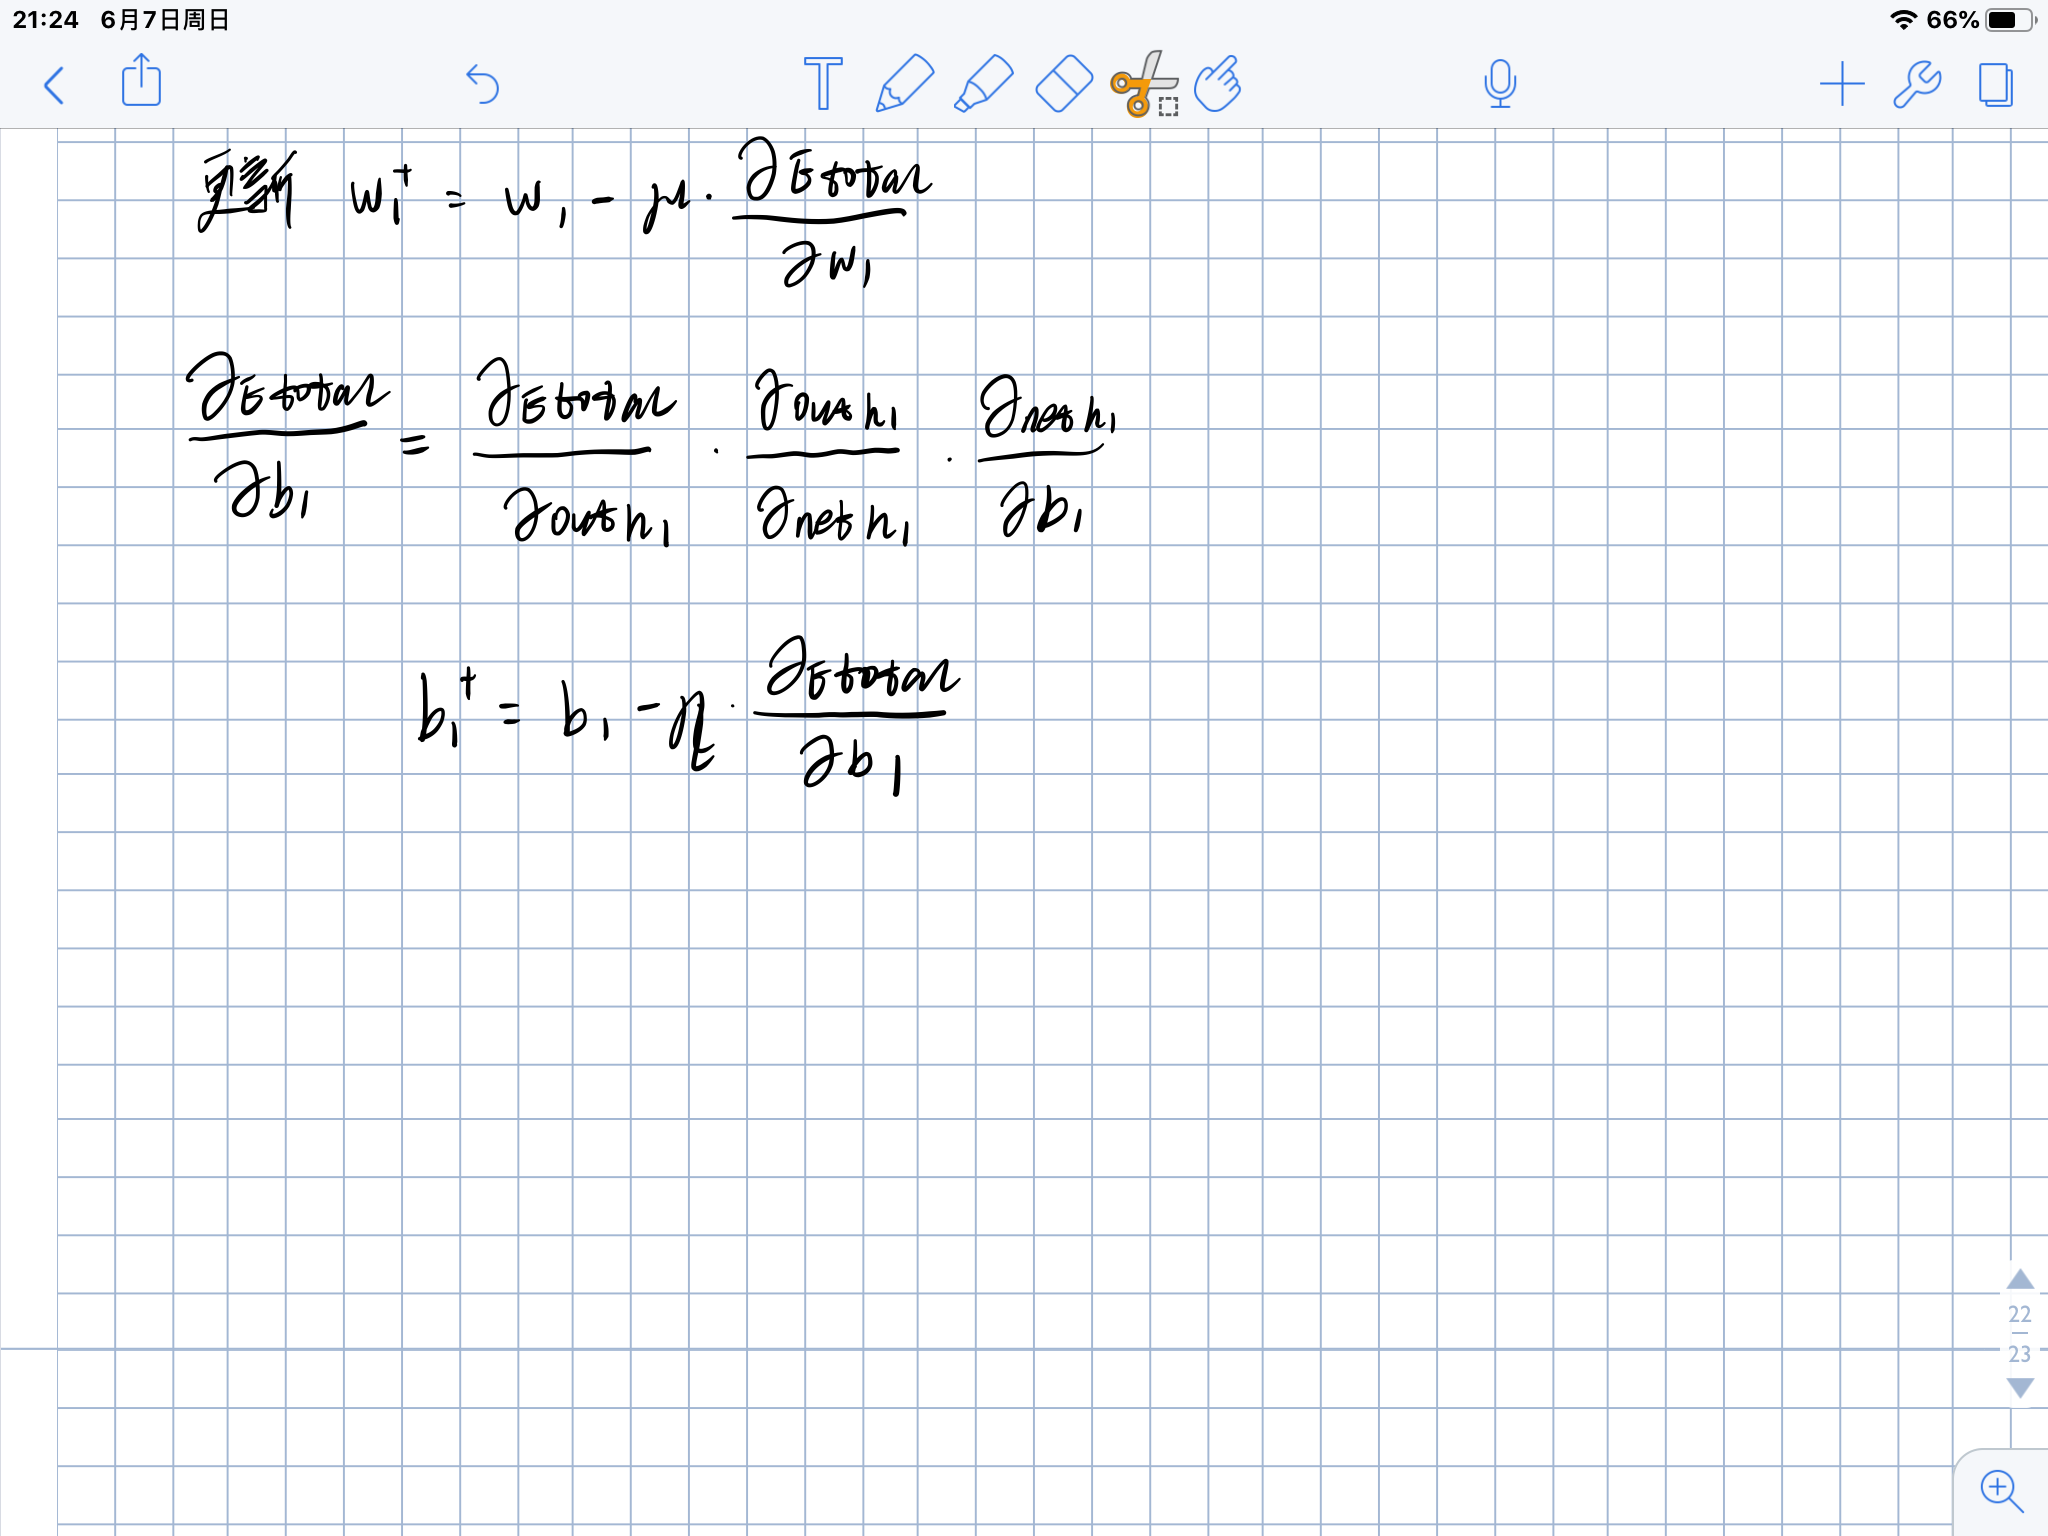 21:24 6月7日周日 66%
T
更新 w₁⁺ = w₁ - μ · ∂Etotal / ∂w₁
∂Etotal / ∂b₁ = ∂Etotal / ∂outh₁ · ∂outh₁ / ∂neth₁ · ∂neth₁ / ∂b₁
b₁⁺ = b₁ - η · ∂Etotal / ∂b₁
22
23